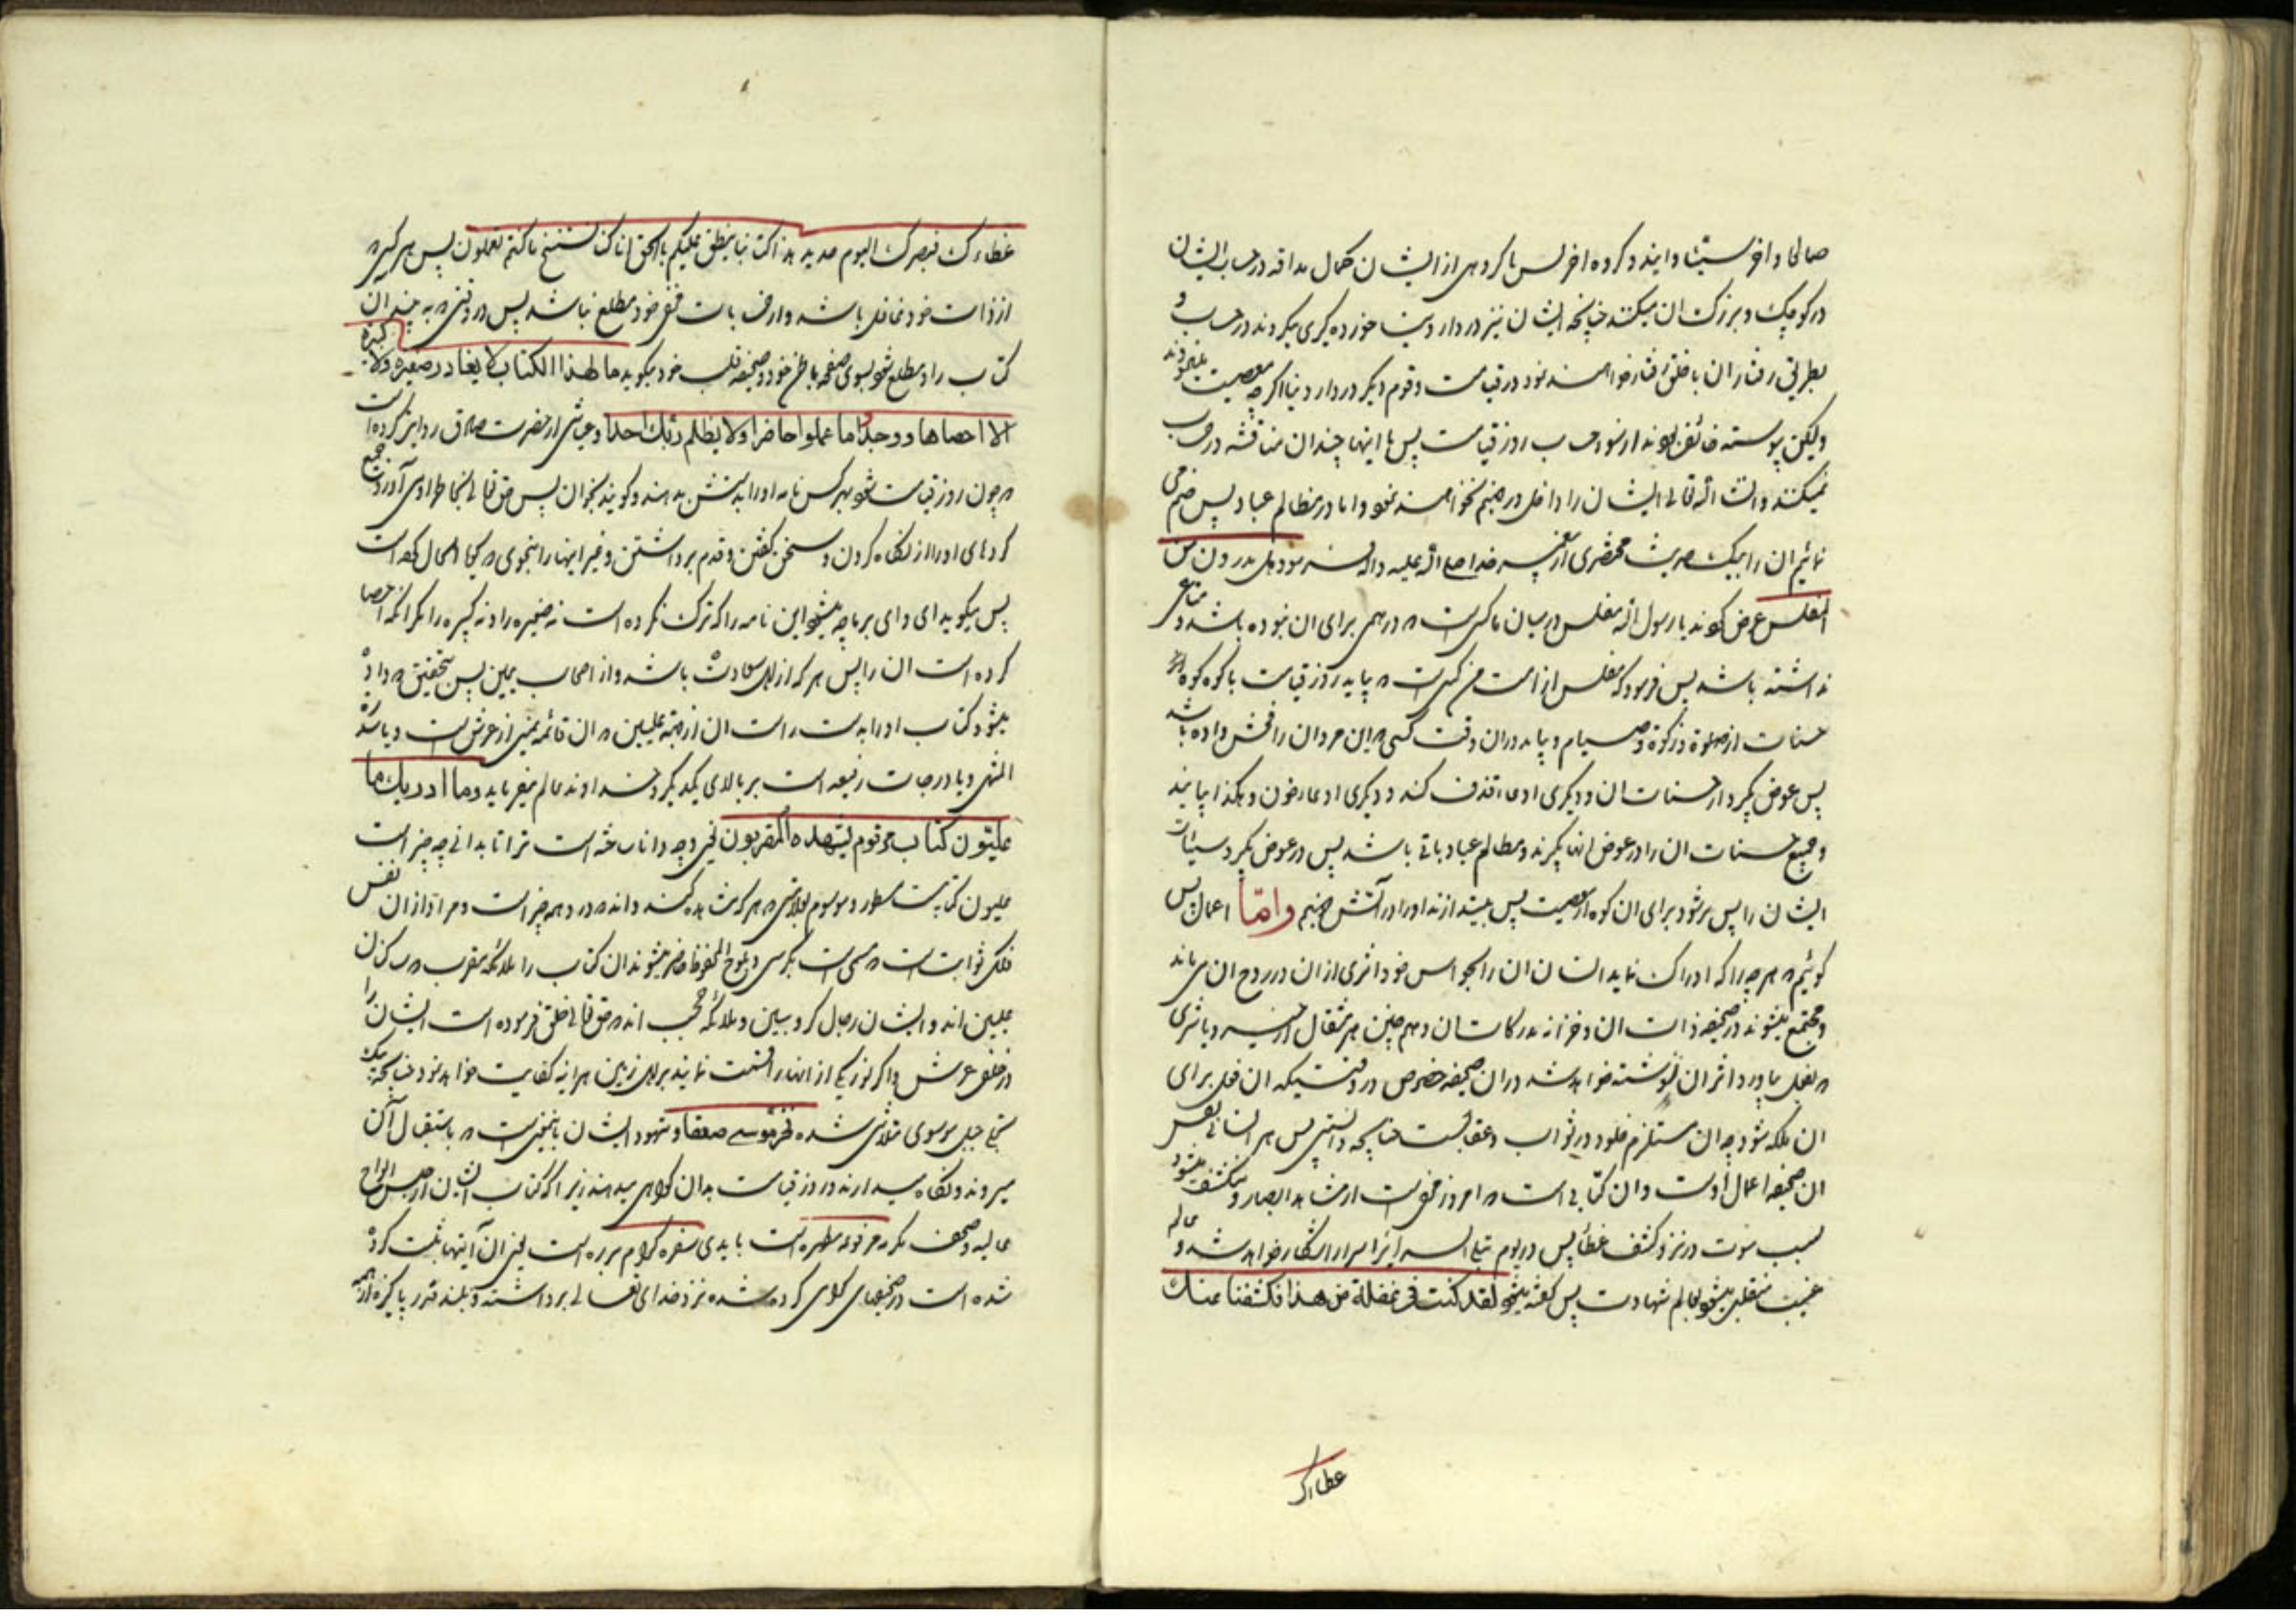 صالحا و اخر سیئا و ایند و کروه اخر پس با کروهی از ایشان کمال مداقه در حساب ایشان
در کوچک و بزرک ان میکنند چنانچه ایشان نیز در دار دنیا خورده کیری میکردند در حساب و
بطریق رفتار ان با خلق رفتار خواهند نمود در قیامت و قوم دیکر در دار دنیا اکر چه معصیت میکردند
ولیکن پیوسته خائف بودند از سوء حساب روز قیامت پس با اینها چندان مناقشه در حساب
نمیکنند و انشاء الله تعالی ایشان را داخل در جهنم نخواهند نمود و اما در مظالم عباد پس ختم می
نمائیم ان را بیک حدیث مختصری از پیغمبر خدا صلی الله علیه و اله فرمود هل تدرون من
المفلس عرض کردند یا رسول الله مفلس در میان ما کسی است که درهمی برای ان نبوده باشد و متاعی
نداشته باشد پس فرمود که مفلس از امت من کسی است که بیاید روز قیامت با کوه کوه از
حسنات از صلوة و زکوة و صیام و بیاید در ان وقت کسی که این مرد ان را فحش داده باشد
پس عوض بگیرد از حسنات ان و دیکری ادعا قذف کند و دیکری ادعا خون و هکذا بیایند
و جمیع حسنات ان را در عوض انها بگیرند و مظالم عباد باقی باشد پس در عوض بگیرد سیئات
ایشان را پس بر شود برای ان کوه از معصیت پس بیندازند او را در آتش جهنم واما اعمال پس
کوئیم که هر چه را که ادراک نماید انسان ان را بحواس خود اثری از ان در روح ان می ماند
و مجتمع میشوند در صحیفه ذات ان و خزانه مدرکات ان و هم چنین هر مثقال از خیر و یا شری
که بفعل بیاورد اثر ان نوشته خواهد شد در ان صحیفه خصوص در وقتیکه ان فعل برای
ان ملکه شود چه ان مستلزم خلود در ثواب و عقابست چنانچه دانستی پس هر انسانی نفس
ان صحیفه اعمال اوست و ان کتابی است که امروز مخفی است از مشاهد ابصار و منکشف میشود
بسبب موت در نزد کشف غطا پس در یوم تبلی السرایر اسرار اشکار خواهد شد و عالم
غیب منقلب میشود بعالم شهادت پس کفته میشود لقد کنت فی غفلة من هذا فکشفنا عنک
عطاءک
غطاءک فبصرک الیوم حدید هذا کتابنا ینطق علیکم بالحق انا کنا نستنسخ ما کنتم تعملون پس هر کس که
از ذات خود غافل باشد و از حساب نفس خود مطلع نباشد پس در وقتی که به بیند ان
کتاب را و مطلع شود بسوی صفحه باطن خود و صحیفه قلب خود میکوید ما لهذا الکتاب لا یغادر صغیرة ولا کبیرة
الا احصاها ووجدوا ما عملوا حاضرا ولا یظلم ربک احدا و عیاشی از حضرت صادق روایت کرده است
که چون روز قیامت شود هر کس نامه او را بدستش بدهند و کویند بخوان پس حق تعالی بخاطر او می آورد جمیع
کردهای او را از نگاه کردن و سخن کفتن و قدم برداشتن و غیر اینها را بنحوی که کویا الحال کرده است
پس میکوید ای وای بر ما چه میشود این نامه را که ترک نکرده است نه صغیره را و نه کبیره را مکر انکه احصا
کرده است ان را پس هر که از اهل سعادت باشد و از اصحاب یمین پس بتحقیق که داده
میشود کتاب او را بدست راست ان از جهة علیین که ان قائمه یمین از عرش است و یا سدرة
المنتهی و یا درجات رفیعه است بر بالای یکدیکر و خداوند عالم میفرماید وما ادریک ما
علیون کتاب مرقوم یشهده المقربون یعنی و چه دانا ساخته است ترا تا بدانی چه چیز است
علیون کتابیست مسطور و موسوم بعلامتی که هر که مشاهده کند داند که در او چه چیز است و مراد از ان نفس
فلک ثوابت است که مسمی است بکرسی و بلوح المحفوظ حاضر میشوند ان کتاب را ملائکه مقرب که ساکنان
علیین اند و ایشان رجال کروبیین و ملائکه حجب اند که حق تعالی خلق فرموده است ایشان را
در خلف عرش و اکر نور یکی از انها را قسمت نمایند بر اهل زمین هر اینه کفایت خواهد نمود چنانچه بیک
تجلی جبل موسوی متلاشی شده فخر موسی صعقا و شهود ایشان باینمعنی است که باستقبال آن
میروند و نگاه میدارند در روز قیامت بدان کواهی میدهند زیرا که کتاب ایشان از جنس الواح
عالیه و صحف مکرمه مرفوعه مطهره است بایدی سفره کرام برره است یعنی ان آیتها ثبت کرده
شده است در صحیفهای کرامی کرده شده نزد خدای تعالی برداشته و بلند قدر پاکیزه از همه